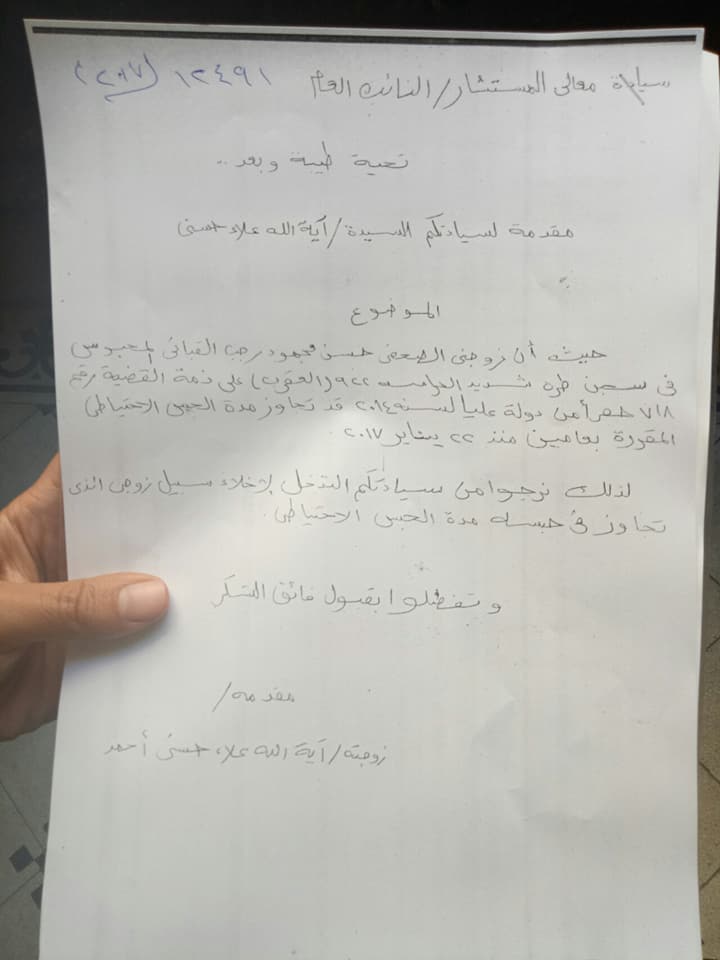 سيادة معالى المستشار/ النائب العام ١٢٤٩١ (٢٠١٧)
تحية طيبة وبعد ..
مقدمة لسيادتكم السيدة/ آية الله علاء حسنى
الموضوع
حيث أن زوجى الصحفى حسن محمود رجب القبانى المحبوس
فى سجن طره شديد الحراسه ٩٢٢ (العقرب) على ذمة القضية رقم
٧١٨ حصر أمن دولة عليا لسنه ٢٠١٤ قد تجاوز مدة الحبس الاحتياطى
المقررة بعامين منذ ٢٢ يناير ٢٠١٧.
لذلك نرجوا من سيادتكم التدخل لإخلاء سبيل زوجى الذى
تجاوز فى حبسه مدة الحبس الاحتياطى.
وتفضلوا بقبول فائق الشكر
مقدمه/
زوجته/ آية الله علاء حسنى أحمد